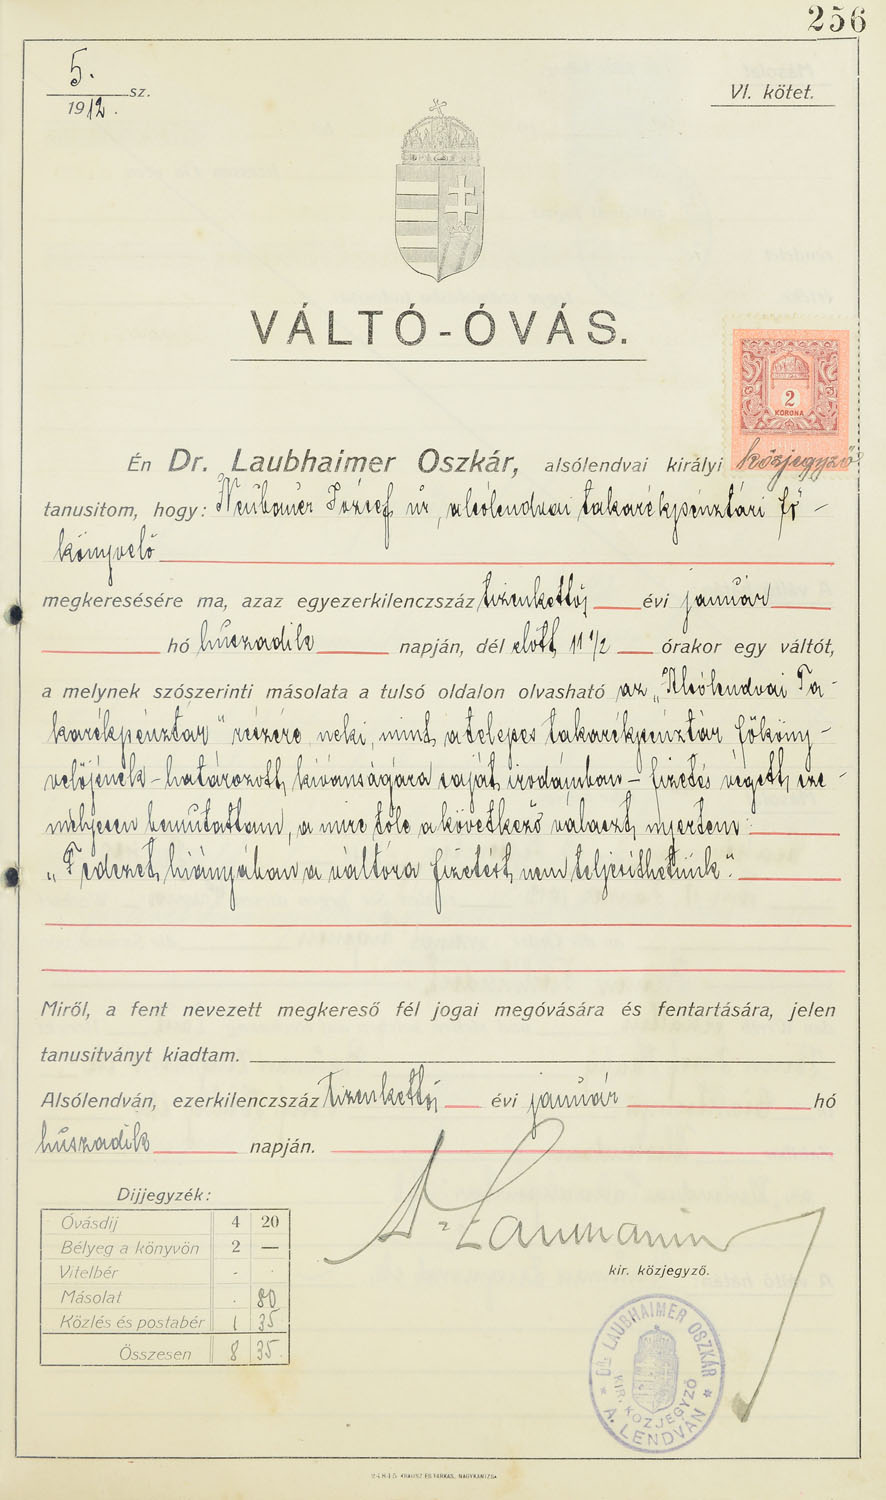 256
5. sz.
1912.
VI. kötet.
VÁLTÓ-ÓVÁS.
2
KORONA
Én Dr. Laubhaimer Oszkár, alsólendvai királyi közjegyző
tanusitom, hogy: Neubauer József úr, alsólendvai takarékpénztári fő-
könyvelő
megkeresésére ma, azaz egyezerkilenczszáz tizenkettőj évi január
hó huszadik napján, dél előtt 11 1/2 órakor egy váltót,
a melynek szószerinti másolata a tulsó oldalon olvasható az „Alsólendvai Ta-
karékpénztár" részére neki, mint a telepes takarékpénztár főköny-
velőjének - határozott kivánságára saját irodámban - fizetés végett sze-
mélyesen bemutattam, a mire tőle a következő választ nyertem:
„Fedezet hiányában a váltóra fizetést nem teljesithetünk".
Miről, a fent nevezett megkereső fél jogai megóvására és fentartására, jelen
tanusitványt kiadtam.
Alsólendván, ezerkilenczszáz tizenkettőj évi január hó
huszadik napján.
Dijjegyzék:
Óvásdij 4 20
Bélyeg a könyvön 2 —
Vitelbér . .
Másolat . 80
Közlés és postabér 1 35
Összesen 8 35
kir. közjegyző.
DR. LAUBHAIMER OSZKÁR
KIR. KÖZJEGYZŐ
A. LENDVÁN